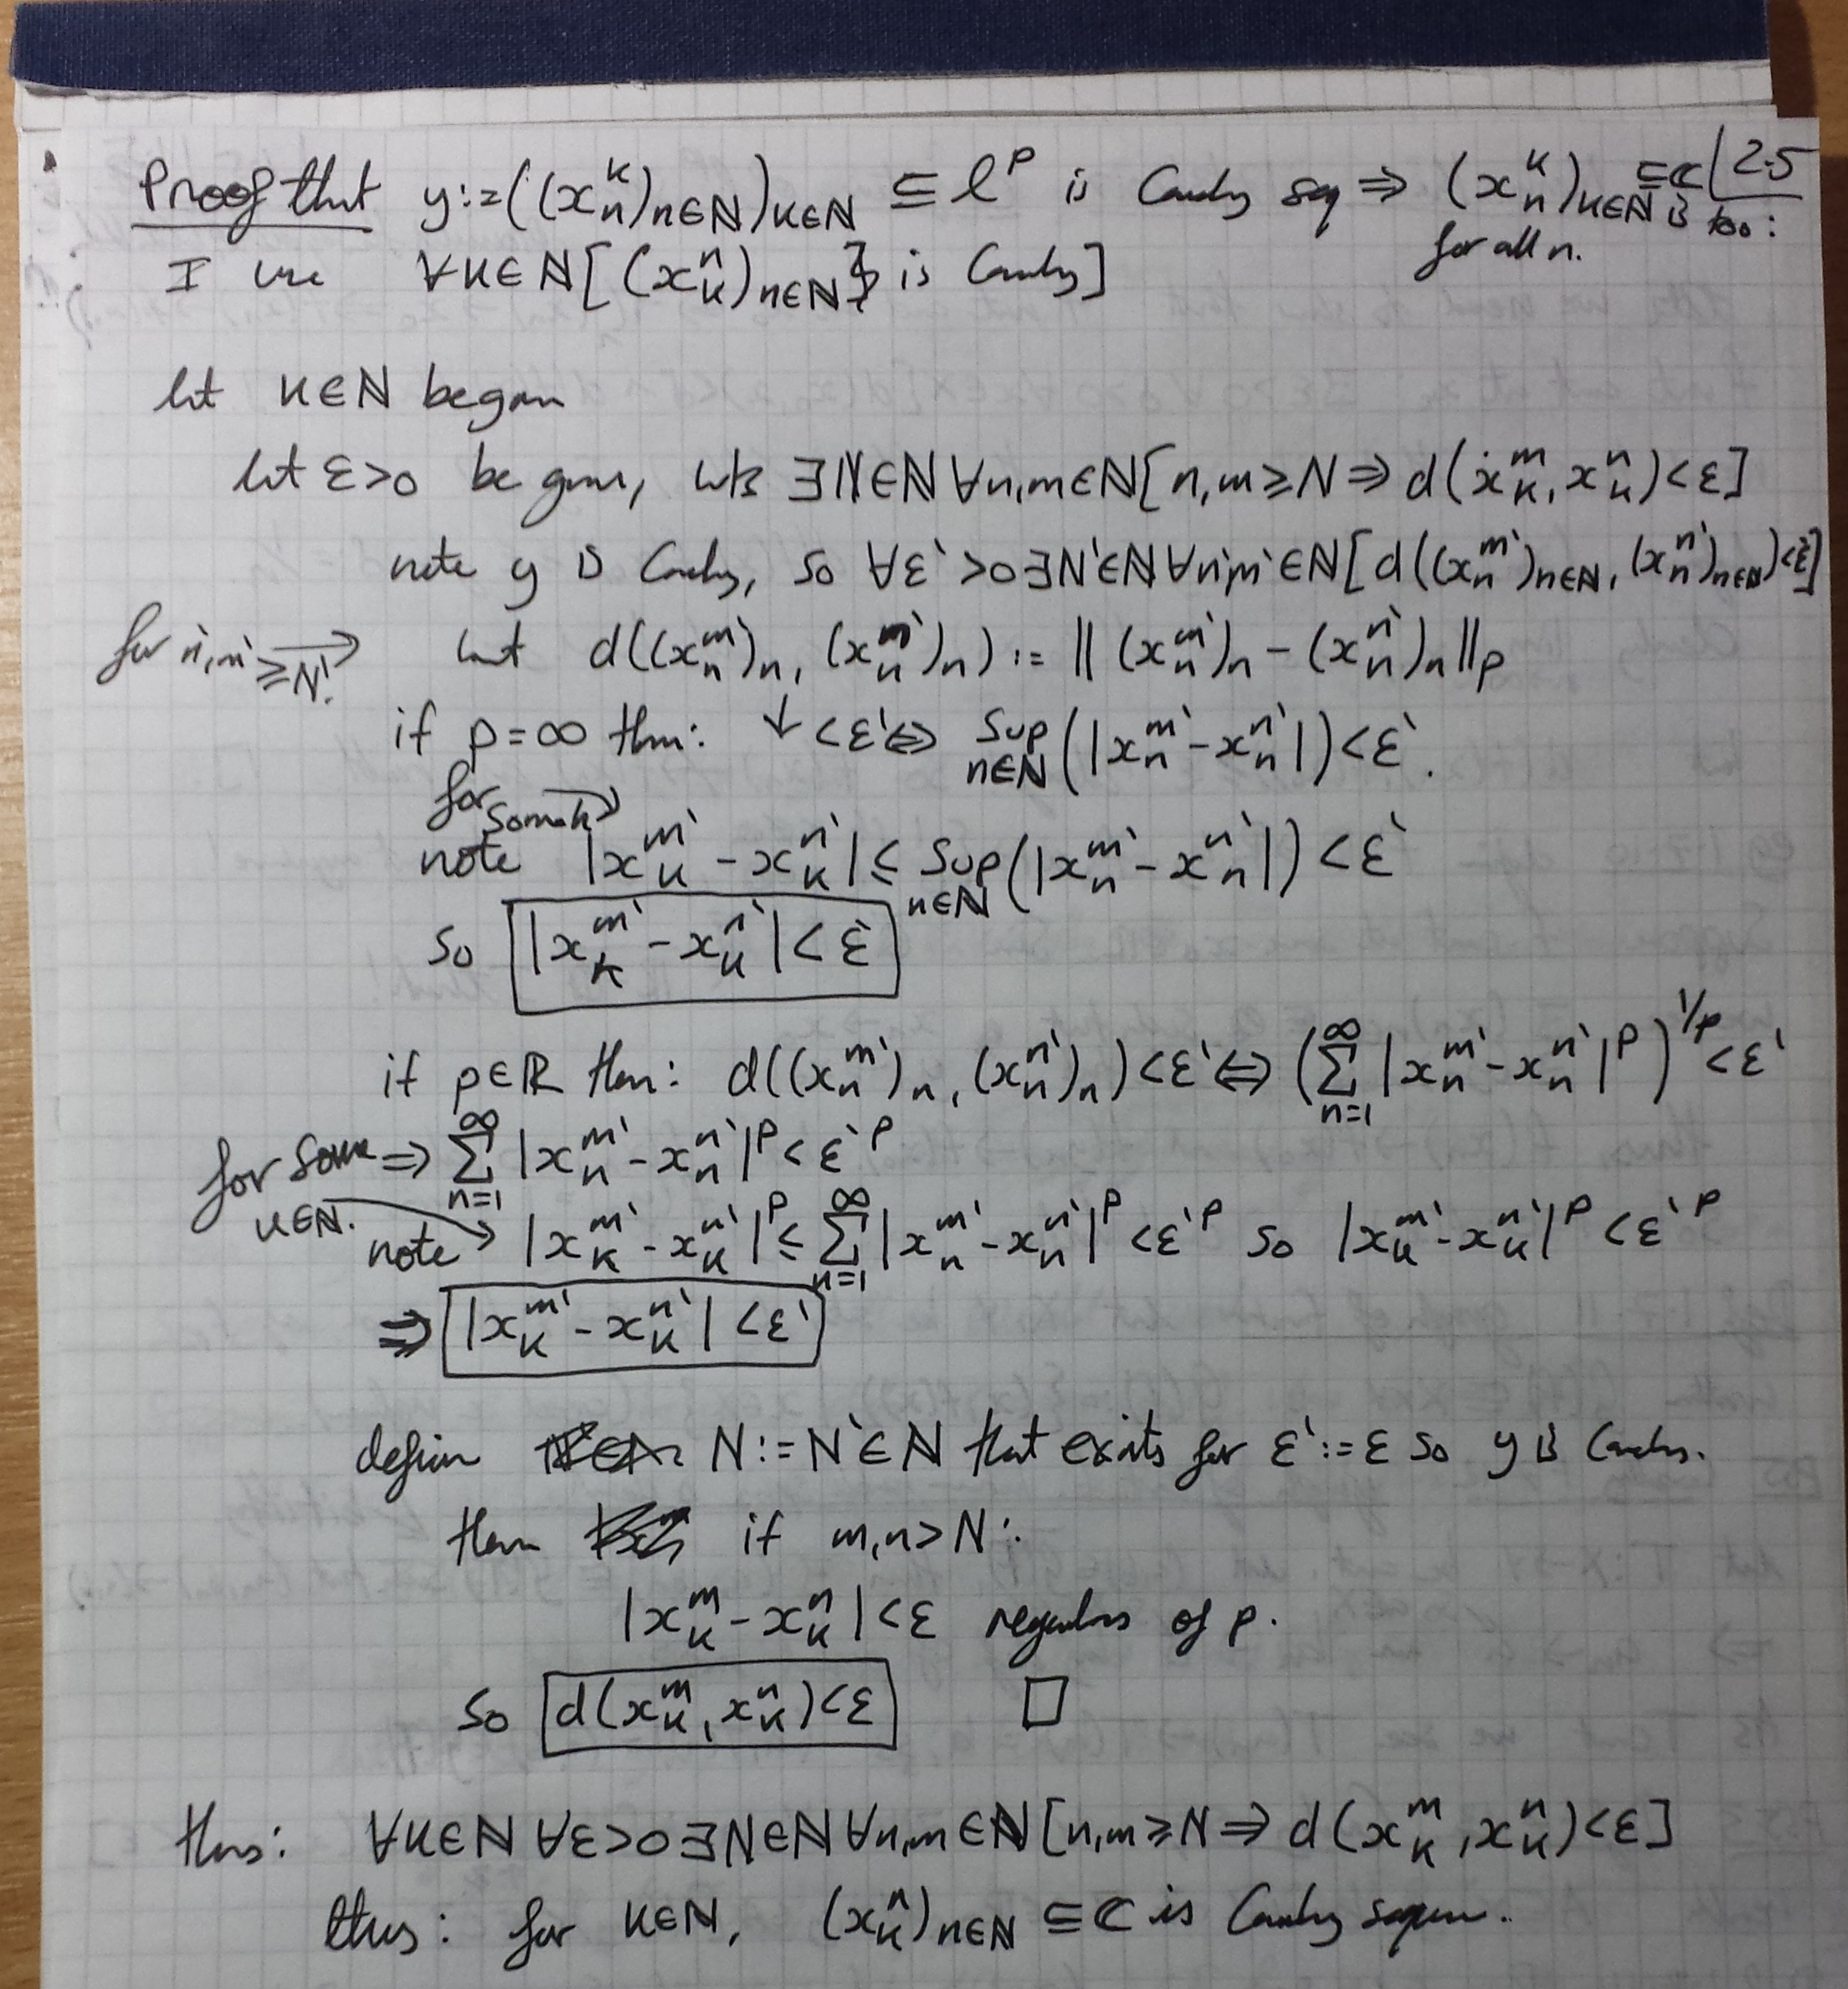 Proof that y:=((x_n^k)_{n∈ℕ})_{k∈ℕ} ⊆ ℓ^p is Cauchy seq ⇒ (x_n^k)_{k∈ℕ} ⊆ ℂ is too: for all n. | 2.5
I use ∀k∈ℕ[(x_k^n)_{n∈ℕ} is Cauchy]
let k∈ℕ be given
let ε>0 be given, wts ∃N∈ℕ ∀n,m∈ℕ[n,m≥N ⇒ d(x_k^m, x_k^n)<ε]
note y is Cauchy, so ∀ε'>0 ∃N'∈ℕ ∀n',m'∈ℕ[d((x_n^{m'})_{n∈ℕ}, (x_n^{n'})_{n∈ℕ})<ε']
for n',m' ≥N'. → but d((x_n^{m'})_n, (x_n^{n'})_n) := ‖(x_n^{m'})_n - (x_n^{n'})_n‖_p
if p=∞ then: ↓ <ε' ⇔ sup_{n∈ℕ}(|x_n^{m'} - x_n^{n'}|)<ε'.
for some k →
note |x_k^{m'} - x_k^{n'}| ≤ sup_{n∈ℕ}(|x_n^{m'} - x_n^{n'}|) <ε'
so |x_k^{m'} - x_k^{n'}| < ε'
if p∈ℝ then: d((x_n^{m'})_n, (x_n^{n'})_n)<ε' ⇔ (∑_{n=1}^∞ |x_n^{m'} - x_n^{n'}|^p)^{1/p} <ε'
⇒ ∑_{n=1}^∞ |x_n^{m'} - x_n^{n'}|^p < ε'^p
for some k∈ℕ. →
note |x_k^{m'} - x_k^{n'}|^p ≤ ∑_{n=1}^∞ |x_n^{m'} - x_n^{n'}|^p <ε'^p so |x_k^{m'} - x_k^{n'}|^p <ε'^p
⇒ |x_k^{m'} - x_k^{n'}| <ε'
define N:=N'∈ℕ that exists for ε':=ε so y is Cauchy.
then if m,n>N:
|x_k^m - x_k^n| <ε regardless of p.
so d(x_k^m, x_k^n)<ε □
thus: ∀k∈ℕ ∀ε>0 ∃N∈ℕ ∀n,m∈ℕ[n,m≥N ⇒ d(x_k^m, x_k^n)<ε]
thus: for k∈ℕ, (x_k^n)_{n∈ℕ} ⊆ ℂ is Cauchy sequence.